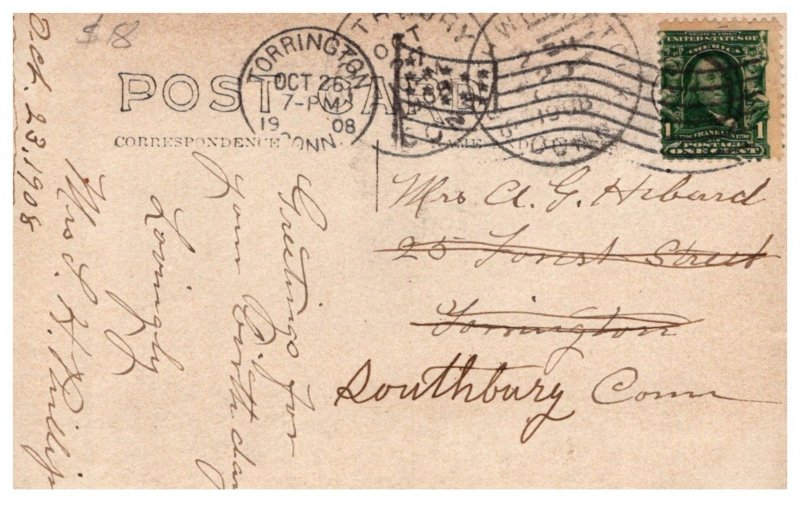 $8
TORRINGTON
OCT 26
7-PM
19 08
CONN.
THBURY
OCT
1908
CONN
POST CARD
CORRESPONDENCE
NAME
UNITED STATES OF
AMERICA
FRANKLIN
1 1
POSTAGE
ONE CENT
Mrs A. G. Hibard
25 Forest Street
Torrington
Southbury Conn
Oct. 23, 1908
Greetings for
your Birthday
Lovingly
Mrs L. H. Phillips